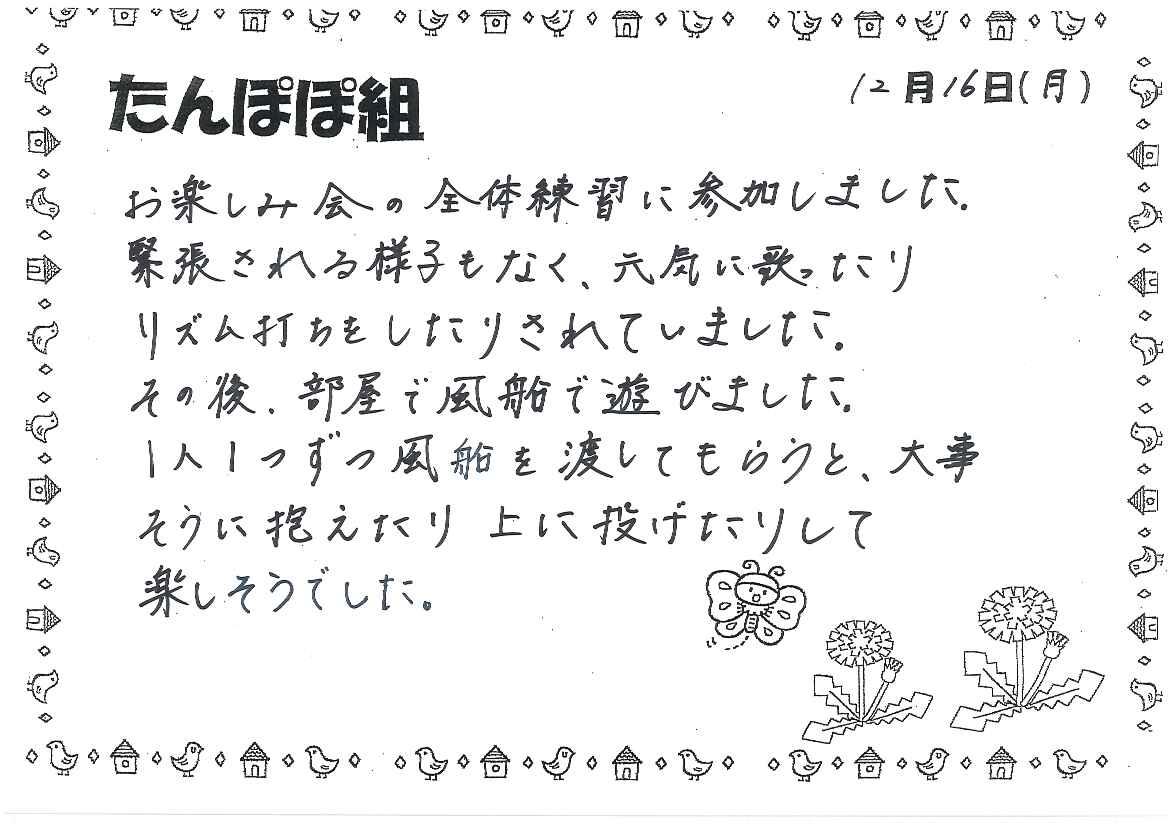 たんぽぽ組
12月16日(月)
お楽しみ会の全体練習に参加しました。
緊張される様子もなく、元気に歌ったり
リズム打ちをしたりされていました。
その後、部屋で風船で遊びました。
1人1つずつ風船を渡してもらうと、大事
そうに抱えたり上に投げたりして
楽しそうでした。